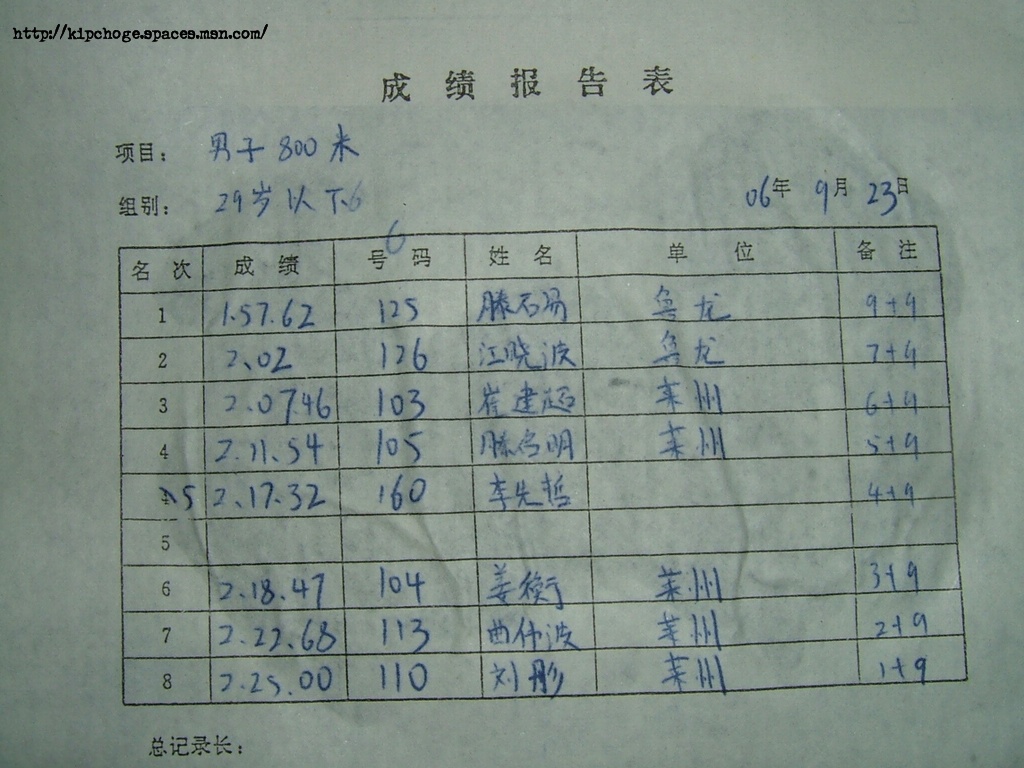 http://kipchoge.spaces.msn.com/
成绩报告表
项目: 男子800米
组别: 29岁以下 6
06年 9月 23日
6
名次 成绩 号码 姓名 单位 备注
1 1.57.62 125 滕石易 乌龙 9+9
2 2.02 126 江晓波 乌龙 7+9
3 2.07.46 103 崔建超 莱州 6+9
4 2.11.54 105 滕启明 莱州 5+9
5 2.17.32 160 李先哲 4+9
5
6 2.18.47 104 姜衡 莱州 3+9
7 2.22.68 113 曲伟波 莱州 2+9
8 2.25.00 110 刘彤 莱州 1+9
总记录长: